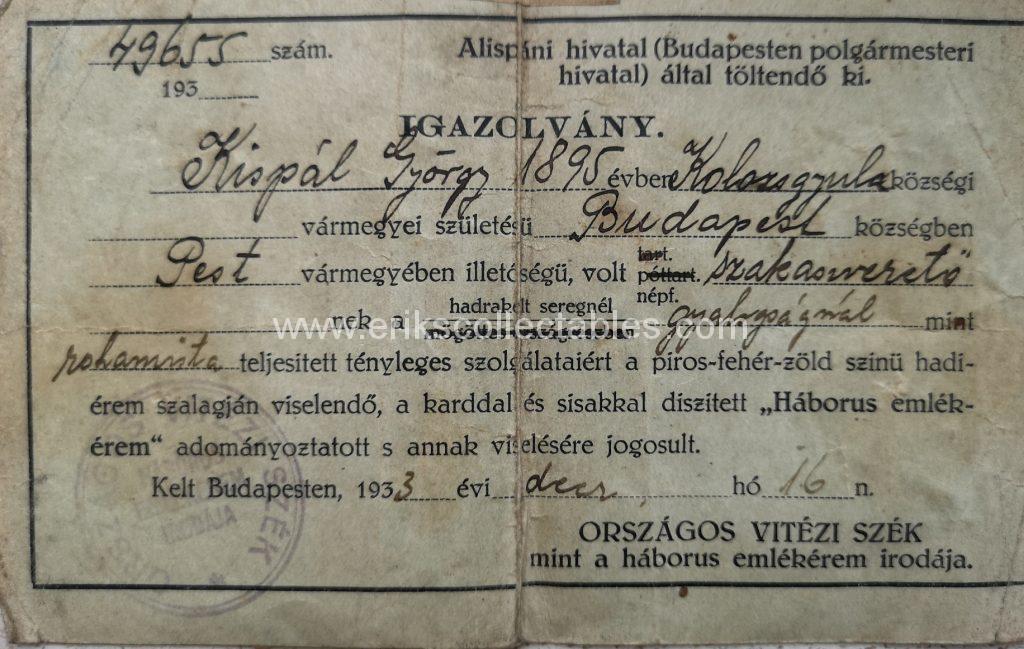 49655 szám.
193
Alispáni hivatal (Budapesten polgármesteri
hivatal) által töltendő ki.
IGAZOLVÁNY.
Kispál György 1895 évben Kolozsgyula községi
vármegyei születésü Budapest községben
Pest vármegyében illetőségü, volt tart. póttart. népf. szakaszvezető
nek a hadrakelt seregnél gyalogságnál mint
rohamista teljesitett tényleges szolgálataiért a piros-fehér-zöld szinü hadi-
érem szalagján viselendő, a karddal és sisakkal diszitett „Háborus emlék-
érem“ adományoztatott s annak viselésére jogosult.
Kelt Budapesten, 1933 évi decr. hó 16 n.
ORSZÁGOS VITÉZI SZÉK
mint a háborus emlékérem irodája.
www.erikscollectables.com